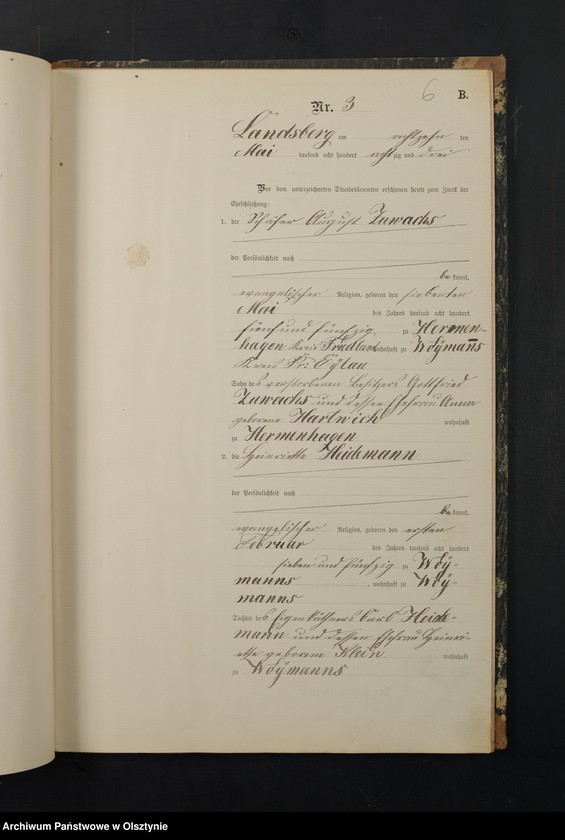 6
B.
Nr. 3
Landsberg am achtzehn ten
Mai tausend acht hundert acht zig und drei
Vor dem unterzeichneten Standesbeamten erschienen heute zum Zweck der
Eheschließung:
1. der Schäfer August Zuwachs
der Persönlichkeit nach
be kannt,
evangelischer Religion, geboren den siebenten
Mai des Jahres tausend acht hundert
fünf und fünfzig zu Hermen-
hagen Kreis Friedland wohnhaft zu Woÿmanns
Kreis Pr: Eylau
Sohn des verstorbenen Besitzers Gottfried
Zuwachs und dessen Ehefrau Anna
geborene Hartwich wohnhaft
zu Hermenhagen
2. die Henriette Heidemann
der Persönlichkeit nach
be kannt,
evangelischer Religion, geboren den ersten
Februar des Jahres tausend acht hundert
sieben und fünfzig zu Woÿ-
manns, wohnhaft zu Woÿ-
manns
Tochter des Eigenkäthners Carl Heide-
mann und dessen Ehefrau Henri-
ette geborene Klein wohnhaft
zu Woÿmanns
Archiwum Państwowe w Olsztynie